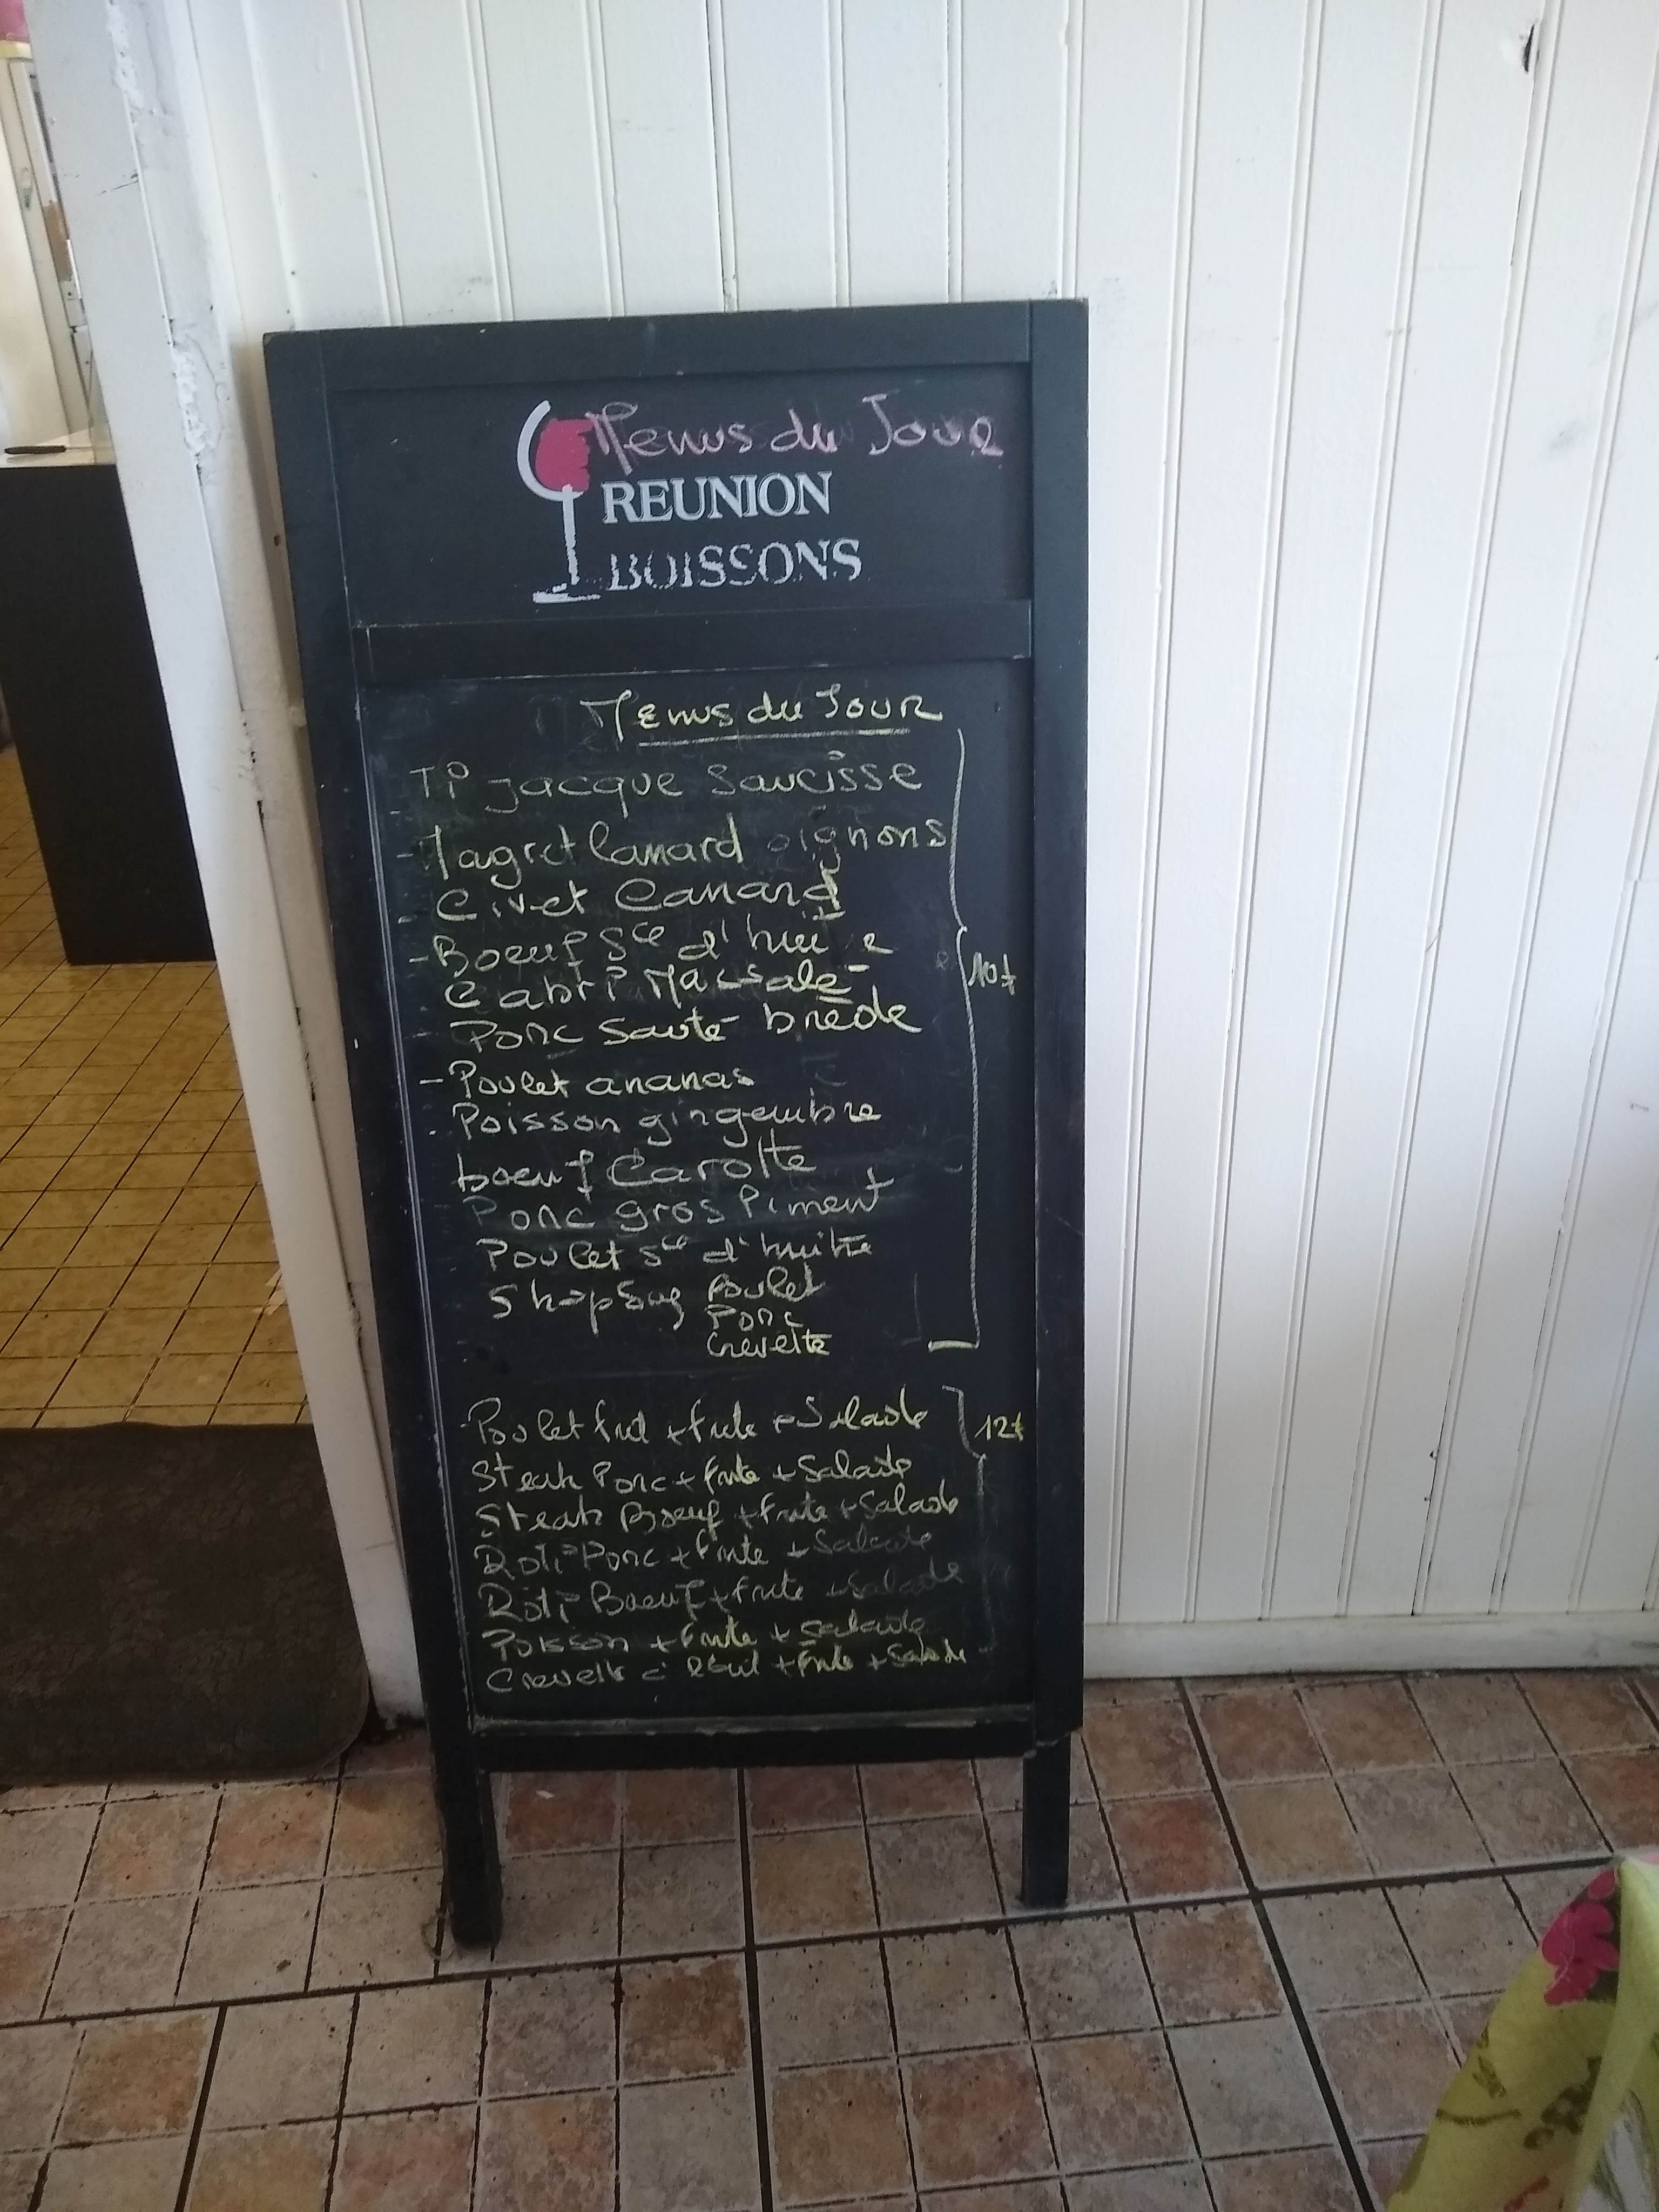 Menus du Jour
REUNION
BOISSONS
Menus du Jour
Ti jacque Saucisse
- Magret Canard oignons
- Civet Canard
- Boeuf Sce d'hui e
Cabri Massalé
- Porc Sauté brède
- Poulet ananas
- Poisson gingembre
boeuf Carotte
Porc gros Piment
Poulet sce d'huitre
Shop Suey Poulet
Porc
Crevette
10€
Poulet frit + frite + Salade
12€
Steak Porc + frite + Salade
Steak Boeuf + frite + Salade
Roti Porc + frite + Salade
Roti Boeuf + frite + Salade
Poisson + frite + Salade
Crevette + frite + Salade